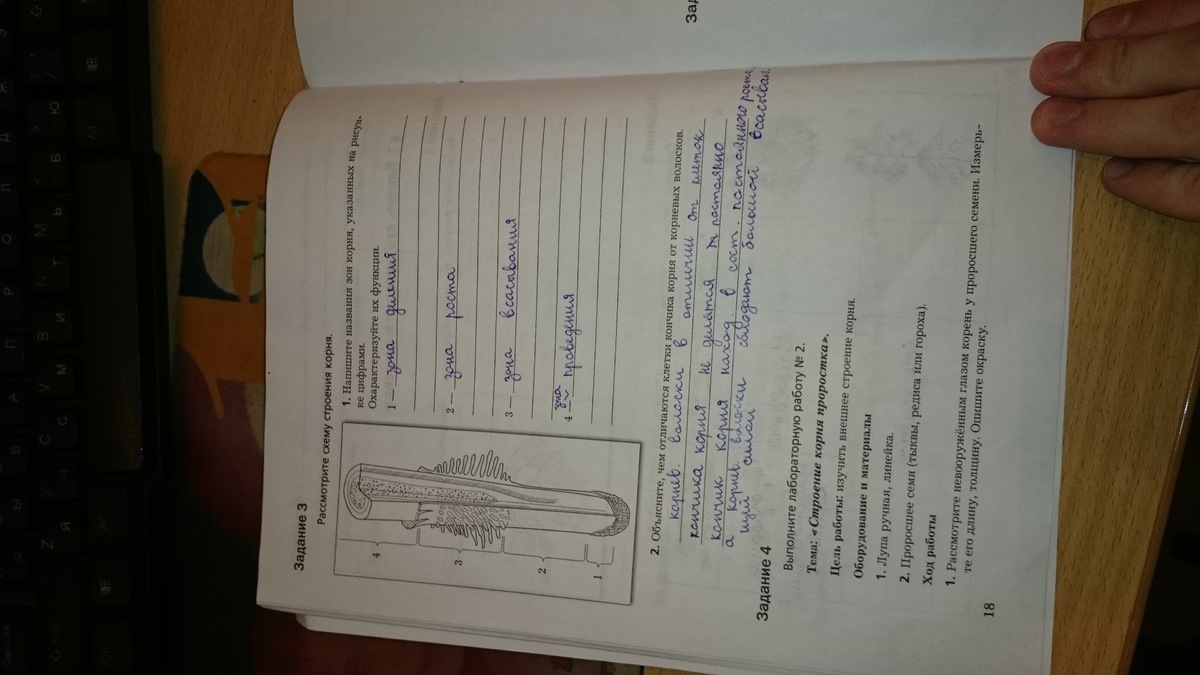 Задание 3
Рассмотрите схему строения корня.
1. Напишите названия зон корня, указанных на рисун-
ке цифрами.
Охарактеризуйте их функции.
1 — зона деления
2 — зона роста
3 — зона всасывания
зона
4 — проведения
4
3
2
1
2. Объясните, чем отличаются клетки кончика корня от корневых волосков.
корнев. волоски в отличии от клеток
кончика корня не делятся постоянно
кончик корня наход. в сост. постоянного роста,
а корнев. волоски обладают большой всасываю
щей силой
Задание 4
Выполните лабораторную работу № 2.
Тема: «Строение корня проростка».
Цель работы: изучить внешнее строение корня.
Оборудование и материалы
1. Лупа ручная, линейка.
2. Проросшее семя (тыквы, редиса или гороха).
Ход работы
1. Рассмотрите невооружённым глазом корень у проросшего семени. Измерь-
те его длину, толщину. Опишите окраску.
18